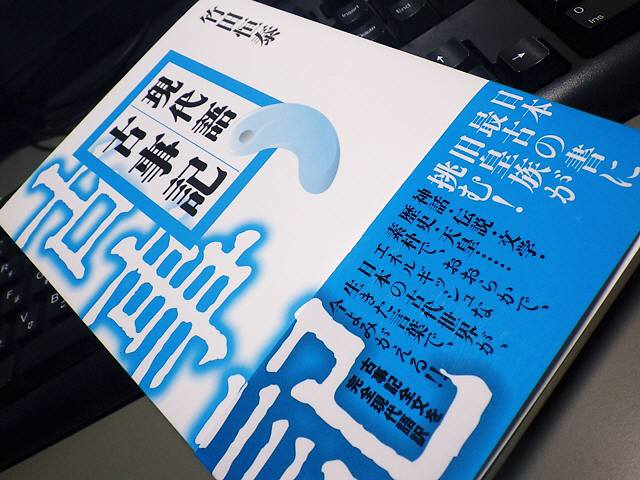 竹田恒泰
現代語
古事記
古事記
日本最古の書に
旧皇族が
挑む!
神話・伝説・文学・
歴史・天皇……
素朴で、おおらかで、
エネルギッシュな
日本の古代世界が、
生きた言葉で、
今よみがえる!!
古事記全文を
完全現代語訳
Insert